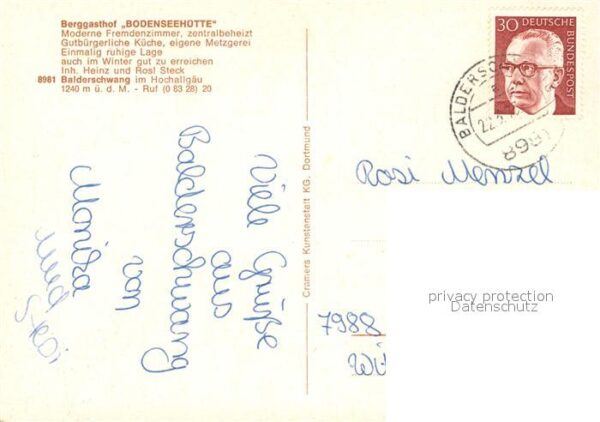 Berggasthof „BODENSEEHÜTTE"
Moderne Fremdenzimmer, zentralbeheizt
Gutbürgerliche Küche, eigene Metzgerei
Einmalig ruhige Lage
auch im Winter gut zu erreichen
Inh. Heinz und Rosl Steck
8981 Balderschwang im Hochallgäu
1240 m ü. d. M. - Ruf (0 83 28) 20
Viele Grüße
aus
Balderschwang
von
Monika
und
Cramers Kunstanstalt KG. Dortmund
30 DEUTSCHE
BUNDESPOST
8981
Rosi Menzel
7988
privacy protection
Datenschutz